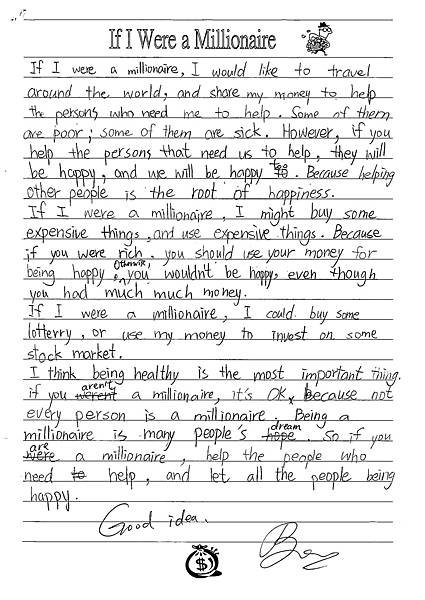 If I Were a Millionaire
If I were a millionaire, I would like to travel
around the world, and share my money to help
the persons who need me to help. Some of them
are poor; some of them are sick. However, if you
help the persons that need us to help, they will
be happy, and we will be happy too to. Because helping
other people is the root of happiness.
If I were a millionaire, I might buy some
expensive things, and use expensive things. Because
if you were rich, you should use your money for
being happy Otherwise, you wouldn't be happy, even though
you had much much money.
If I were a millionaire, I could buy some
lotterry, or use my money to invest on some
stock market.
I think being healthy is the most important thing.
if you aren't weren't a millionaire, it's OK, because not
every person is a millionaire. Being a
millionaire is many people's dream hope. So if you
are were a millionaire, help the people who
need to help, and let all the people being
happy.
Good idea.
$